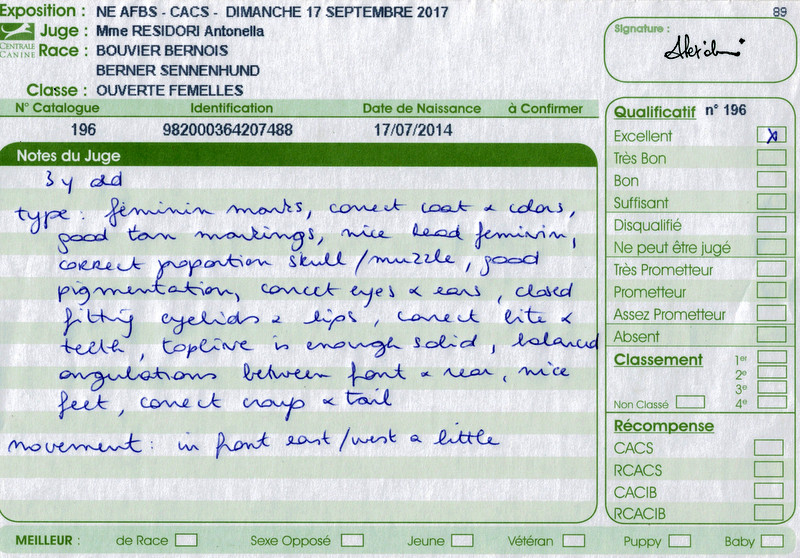 Exposition : NE AFBS - CACS - DIMANCHE 17 SEPTEMBRE 2017
89
CENTRALE CANINE
Juge : Mme RESIDORI Antonella
Race : BOUVIER BERNOIS
BERNER SENNENHUND
Classe : OUVERTE FEMELLES
Signature :
N° Catalogue Identification Date de Naissance à Confirmer
196 982000364207488 17/07/2014
Notes du Juge
3 y old
type : féminin marks, correct coat & colors,
good tan markings, nice head feminin,
correct proportion skull / muzzle, good
pigmentation, correct eyes & ears, closed
fitting eyelids & lips, correct bite &
teeth, topline is enough solid, balanced
angulations between front & rear, nice
feet, correct croup & tail
movement : in front east/west a little
Qualificatif n° 196
Excellent X
Très Bon
Bon
Suffisant
Disqualifié
Ne peut être jugé
Très Prometteur
Prometteur
Assez Prometteur
Absent
Classement 1er
2e
3e
Non Classé 4e
Récompense
CACS
RCACS
CACIB
RCACIB
MEILLEUR : de Race Sexe Opposé Jeune Vétéran Puppy Baby